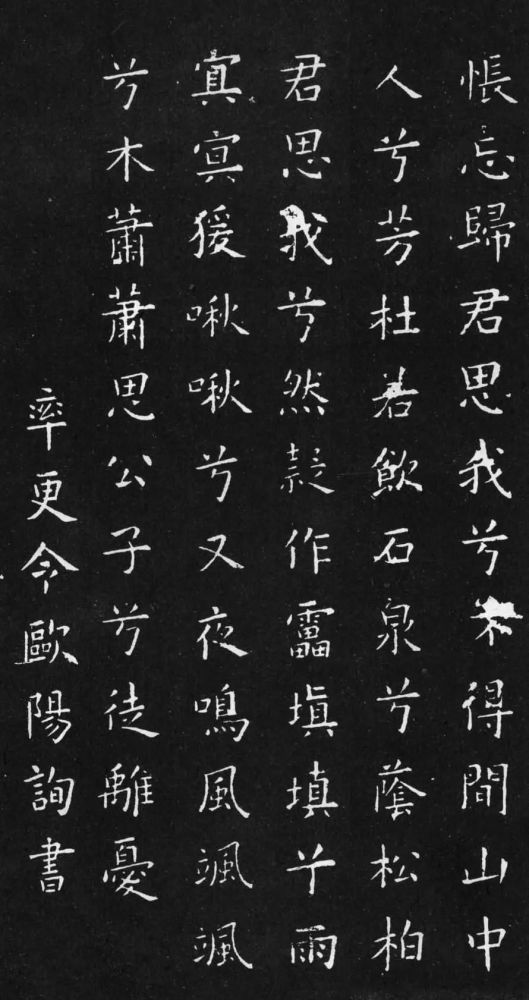 悵忘歸君思我兮不得間山中
人兮芳杜若飲石泉兮蔭松柏
君思我兮然疑作靁填填兮雨
冥冥猨啾啾兮又夜鳴風颯颯
兮木蕭蕭思公子兮徒離憂
率更令歐陽詢書